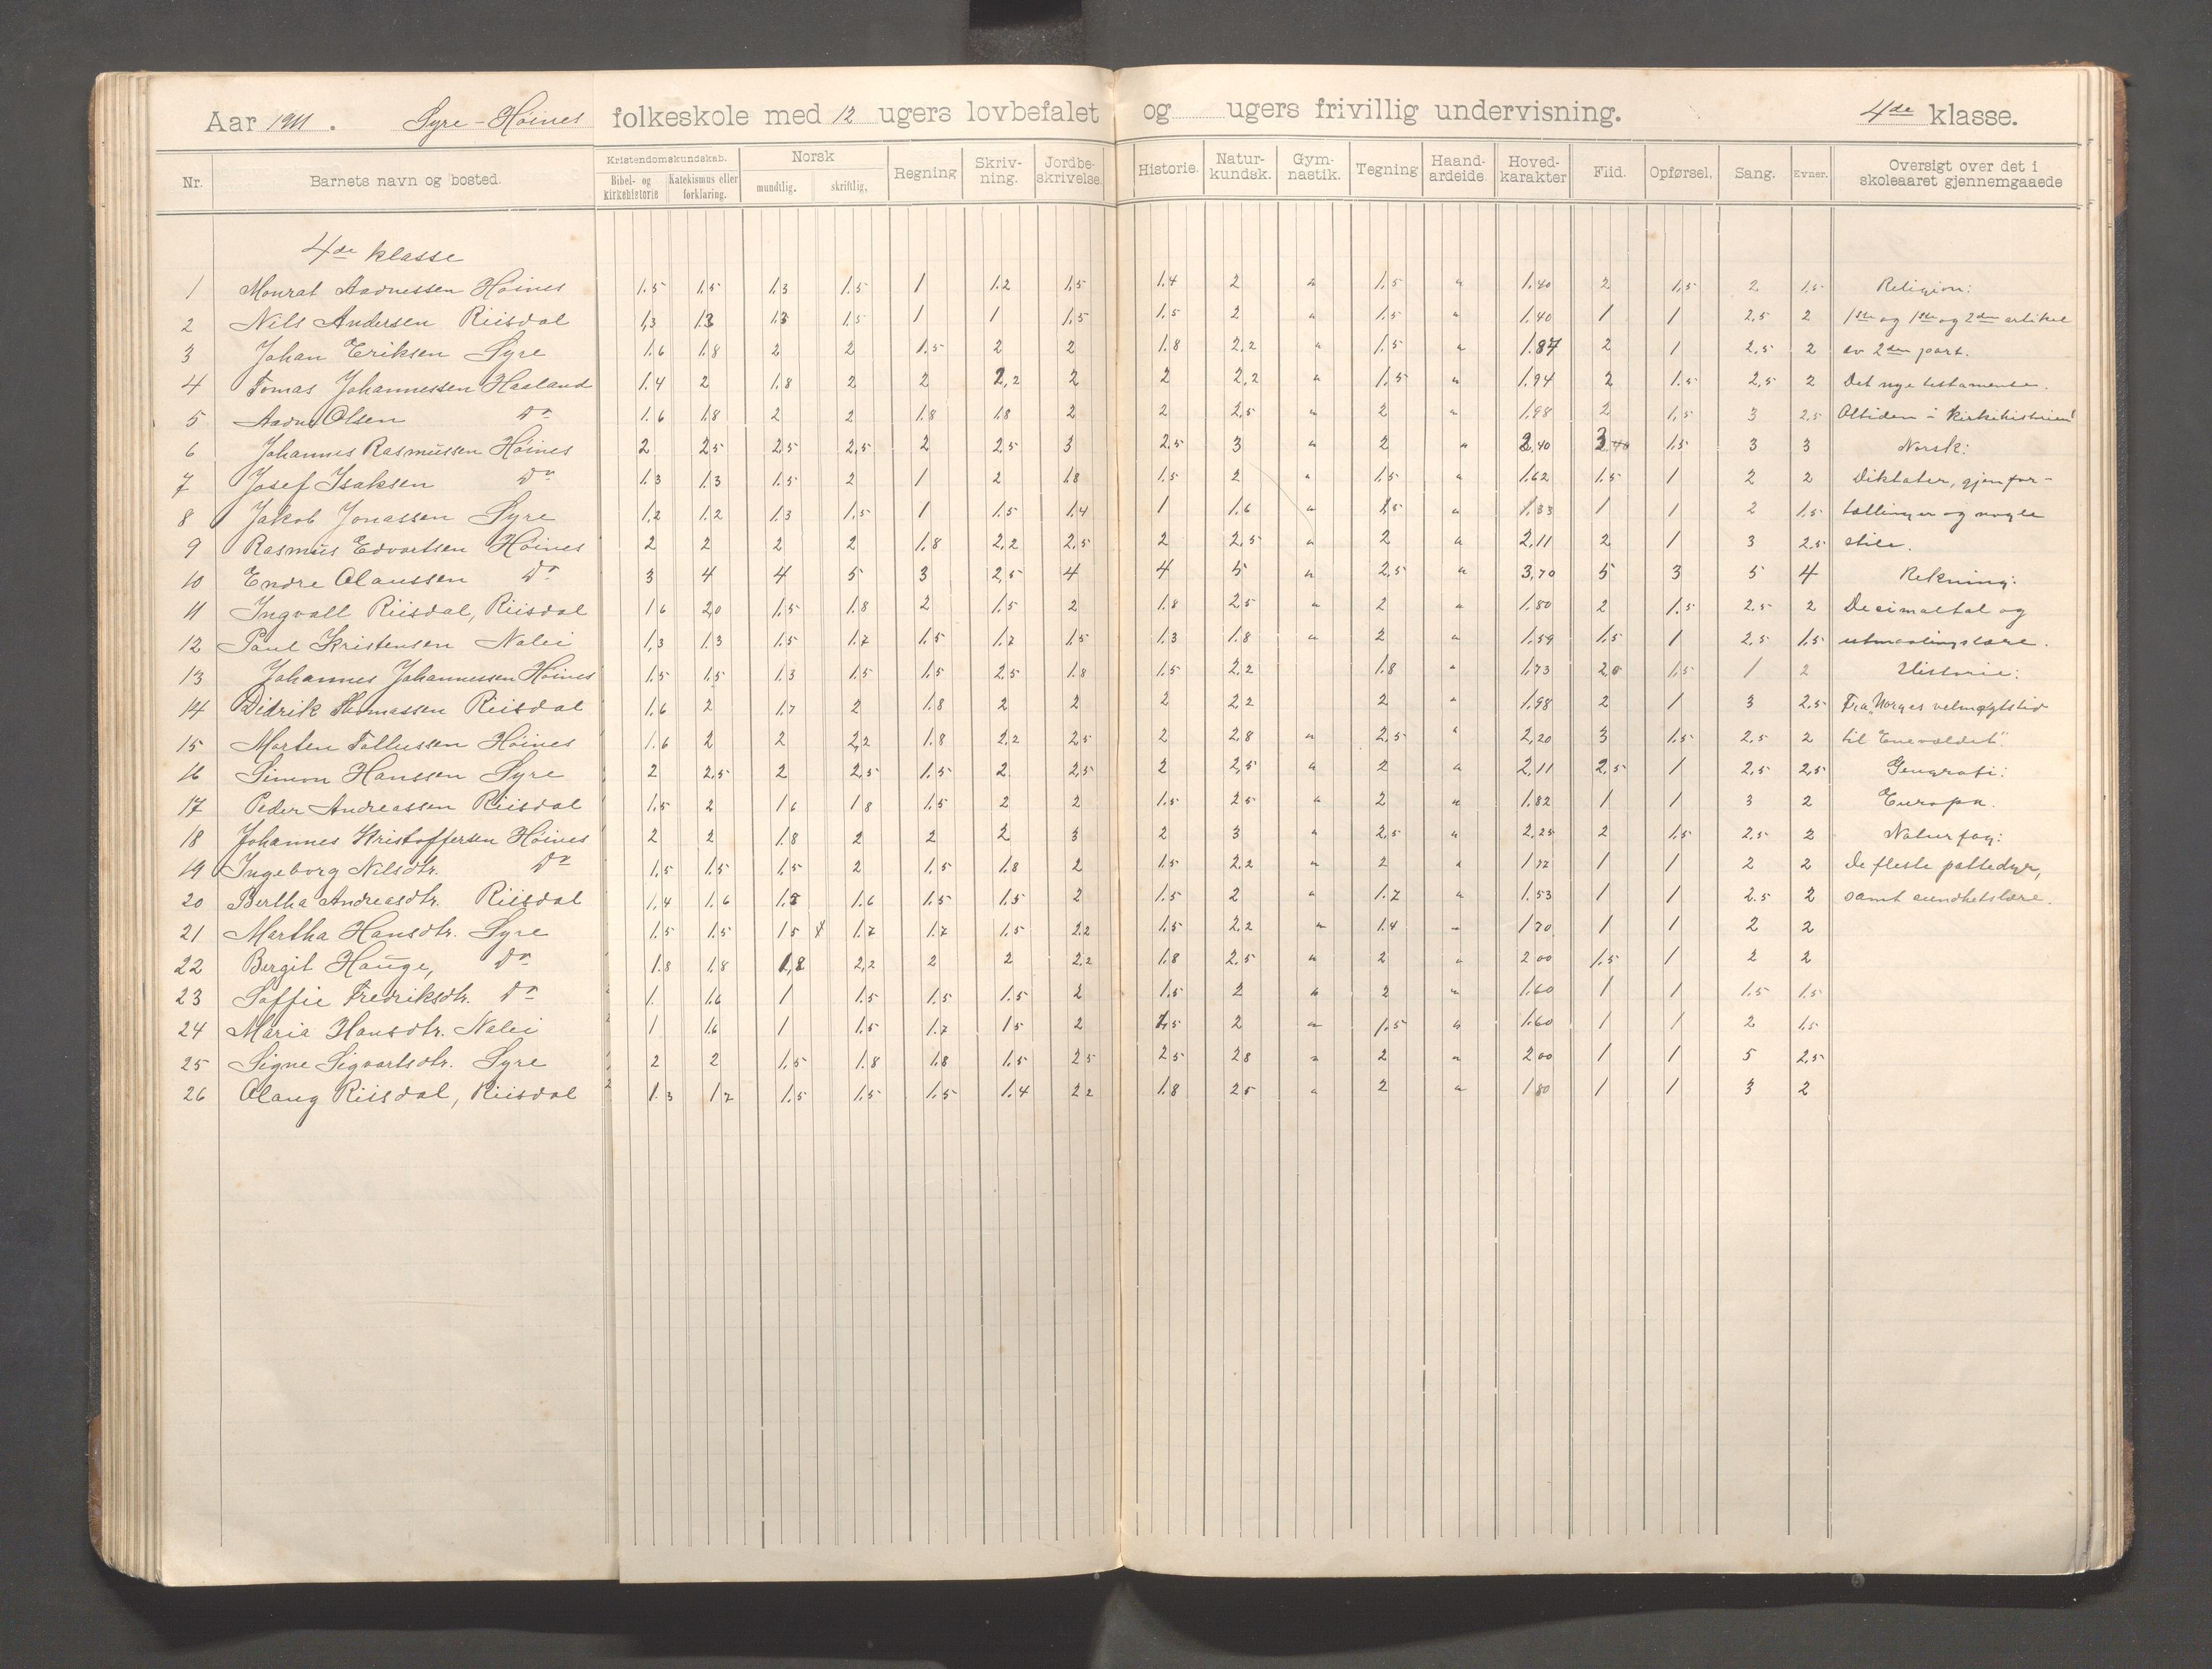 Aar 1911. Syre-Höines folkeskole med 12 ugers lovbefalet og ugers frivillig undervisning. 4de klasse.
Nr. Barnets navn og bosted. Kristendomskundskab. Bibel- og kirkehistorie Katekismus eller forklaring. Norsk mundtlig. skriftlig, Regning Skriv-ning. Jordbe-skrivelse. Historie. Natur-kundsk. Gym-nastik. Tegning Haand-arbeide. Hoved-karakter Flid. Opførsel. Sang. Evner. Oversigt over det i skoleaaret gjennemgaaede
4de klasse
1 Aadnessen Höines 1.5 1.5 1.3 1.5 1 1.2 1.5 1.4 2 " 1.5 " 1.40 2 1.5 2 1.5 Religion:
2 Nils Andersen Riisdal 1,3 1.3 1.3 1.5 1 1 1.5 1.5 2 " 1.5 " 1.40 1 1 2,5 2 1ste og 1ste og 2den artikel
3 Johan Eriksen Syre 1.6 1.8 2 2 1.5 2 2 1.8 2,2 " 1.5 " 1.87 2 1 2,5 2 av 2den part.
4 Tomas Johannessen Haaland 1.4 2 1.8 2 2 2,2 2 2 2,2 " 1.5 " 1.94 2 1.5 2,5 2 Det nye testamente.
5 Aadne Olsen Do 1.6 1.8 2 2 1.8 1.8 2 2 2,5 " 2 " 1.98 2 1,5 3 2,5 Oltiden i kirkehistorien
6 Johannes Rasmussen Höines 2 2.5 2.5 2,5 2 2.5 3 2.5 3 " 2 " 2,40 3 1.5 3 3 Norsk:
7 Josef Isaksen Do 1.3 1.3 1.5 2 1 2 1.8 1.5 2 " 1.5 " 1.62 1.5 1 2 2 Diktater, gjenfor-
8 Jakob Jonassen Syre 1,2 1.2 1.3 1.5 1 1.5 1.4 1 1.6 " 1.5 " 1.33 1 1 2 1.5 tællinger og nogle
9 Rasmus Edvartsen Höines 2 2 2 2 1.8 2,2 2,5 2 2,5 " 2 " 2,11 2 1 3 2,5 stile.
10 Endre Olaussen Do 3 4 4 5 3 2,5 4 4 5 " 2,5 " 3,70 5 3 5 4 Rekning:
11 Ingvall Riisdal, Riisdal 1.6 2,0 1.5 1.8 2 1.5 2 1.8 2.5 " 2 " 1.80 2 1.5 2,5 2 Desimaltal og
12 Paul Kristensen Nalei 1,3 1.3 1.5 1.7 1.5 1.7 1.5 1.3 1.8 " 2 " 1.59 1.5 1 2,5 1.5 utmaalingslære.
13 Johannes Johannessen Höines 1.5 1.5 1.3 1.5 1.5 2.5 1.8 1.5 2.2 1.8 " 1,73 2,0 1.5 1 2 Historie:
14 Didrik Thomassen Riisdal 1.6 2 1.7 2 1.8 2 2 2 2,2 2 " 1,98 2 1 3 2.5 Fra „Norges velmagtstid
15 Morten Tollussen Höines 1.6 2 2 2,2 1.8 2,2 2,5 2 2,8 " 2,5 " 2,20 3 1.5 2,5 2 til Enevældet".
16 Simon Hanssen Syre 2 2,5 2 2,5 1.5 2 2,5 2 2,5 " 2 " 2,11 2,5 1 2,5 2,5 Geografi:
17 Peder Andreassen Riisdal 1.5 2 1.6 1.8 1.5 2 2 1.5 2.5 " 2 " 1.82 1 1 3 2 Europa.
18 Johannes Kristoffersen Höines 2 2 1.8 2 2 2 3 2 3 " 2,5 " 2,25 2 1.5 2,5 2 Naturfag:
19 Ingeborg Nilsdtr. Do 1.5 1.5 1.5 2 1.5 1.8 2 1.5 2.2 " 2 " 1.72 1 1 2 2 De fleste pattedyr,
20 Bertha Andreasdtr. Riisdal 1.4 1.6 1.5 1.6 1.5 1.5 2 1.5 2 " 1.7 " 1.53 1 1 2.5 2 samt sundhetslære.
21 Martha Hansdtr. Syre 1.5 1.5 1.5 x 1.7 1.7 1.5 2.2 1.5 2.2 " 1.4 " 1.70 1 1 2 2
22 Bergit Hauge, Do 1.8 1.8 1,8 2,2 2 2 2,2 1.8 2,5 " 2 " 2 00 1.5 1 2 2
23 Soffie Fredriksdtr. Do 1. 1.6 1 1.5 1.5 1.5 2 1.5 2 " 2 " 1.60 1 1 1.5 1.5
24 Maria Hansdtr. Nalei 1 1.6 1 1.5 1.7 1.5 2 1.5 2 " 1.5 " 1.60 1 1 2 1.5
25 Signe Sigvartsdtr. Syre 2 2 1.5 1.8 1.8 1.5 2.5 2.5 2.8 " 2 " 2 00 1 1 5 2,5
26 Olaug Riisdal, Riisdal 1.3 1.7 1.5 1.5 1.5 1.4 2.2 1.8 2.5 " 2 " 1 80 1 1 3 2